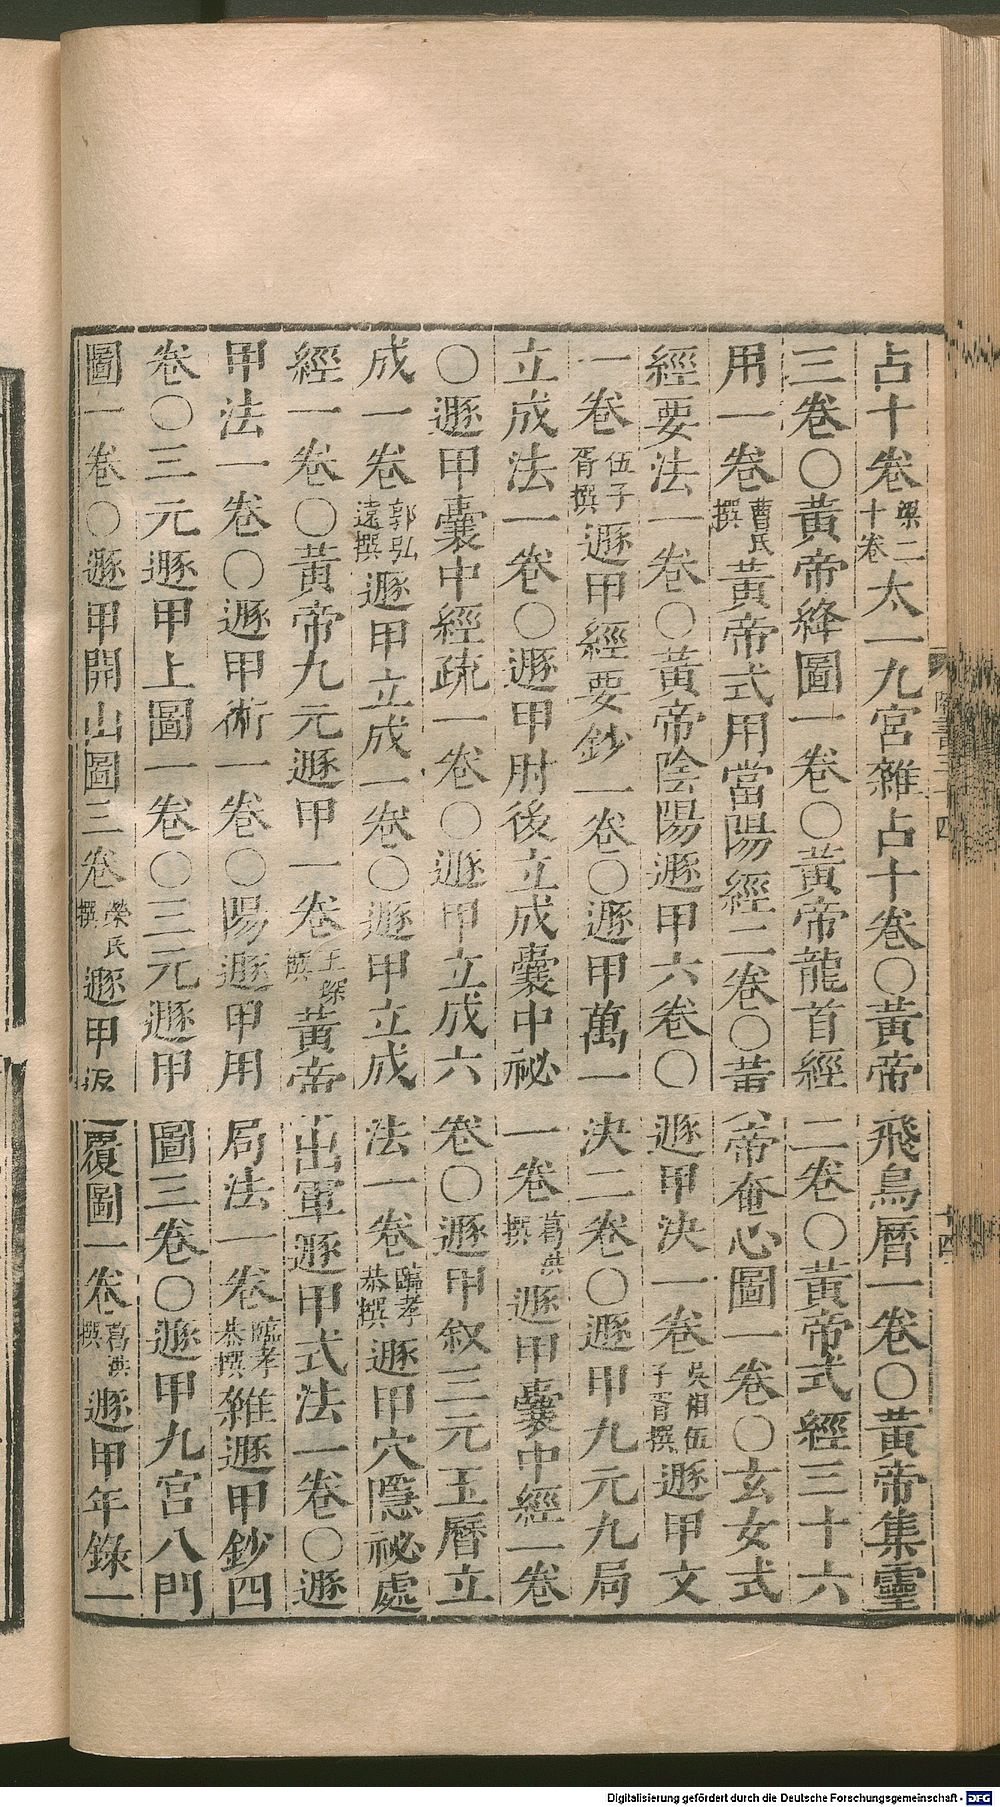 占十卷梁二十卷太一九宮雜占十卷○黃帝飛鳥曆一卷○黃帝集靈
三卷○黃帝絳圖一卷○黃帝龍首經二卷○黃帝式經三十六
用一卷曹氏撰黃帝式用當陽經二卷○黃帝奄心圖一卷○玄女式
經要法一卷○黃帝陰陽遯甲六卷○遯甲決一卷吳相伍子胥撰遯甲文
一卷伍子胥撰遯甲經要鈔一卷○遯甲萬一決二卷○遯甲九元九局
立成法一卷○遯甲肘後立成囊中祕一卷葛洪撰遯甲囊中經一卷
○遯甲囊中經疏一卷○遯甲立成六卷○遯甲敘三元玉曆立
成一卷郭弘遠撰遯甲立成一卷○遯甲立成法一卷臨孝恭撰遯甲穴隱祕處
經一卷○黃帝九元遯甲一卷王琛撰黃帝出軍遯甲式法一卷○遯
甲法一卷○遯甲術一卷○陽遯甲用局法一卷臨孝恭撰雜遯甲鈔四
卷○三元遯甲上圖一卷○三元遯甲圖三卷○遯甲九宮八門
圖一卷○遯甲開山圖三卷榮氏撰遯甲返覆圖一卷葛洪撰遯甲年錄一
Digitalisierung gefördert durch die Deutsche Forschungsgemeinschaft - DFG